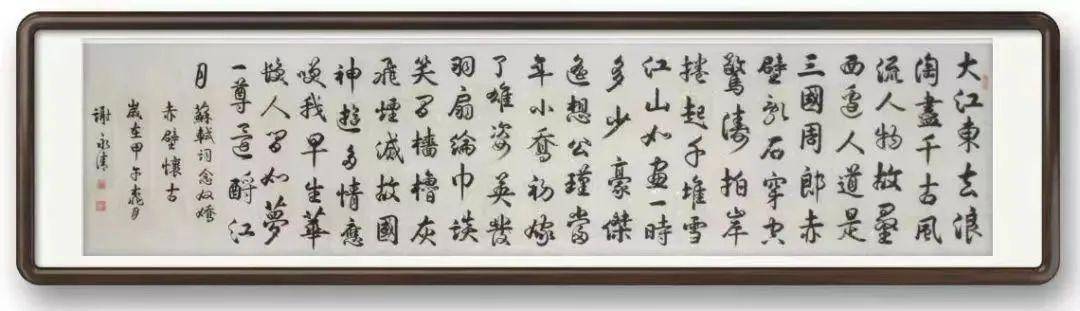 大江東去浪
淘盡千古風
流人物故壘
西邊人道是
三國周郎赤
壁亂石穿空
驚濤拍岸
捲起千堆雪
江山如畫一時
多少豪傑
遙想公瑾當
年小喬初嫁
了雄姿英發
羽扇綸巾談
笑間檣櫓灰
飛煙滅故國
神遊多情應
咲我早生華
髮人間如夢
一尊還酹江
月
蘇軾詞念奴嬌
赤壁懷古
歲在甲午月
謝永清